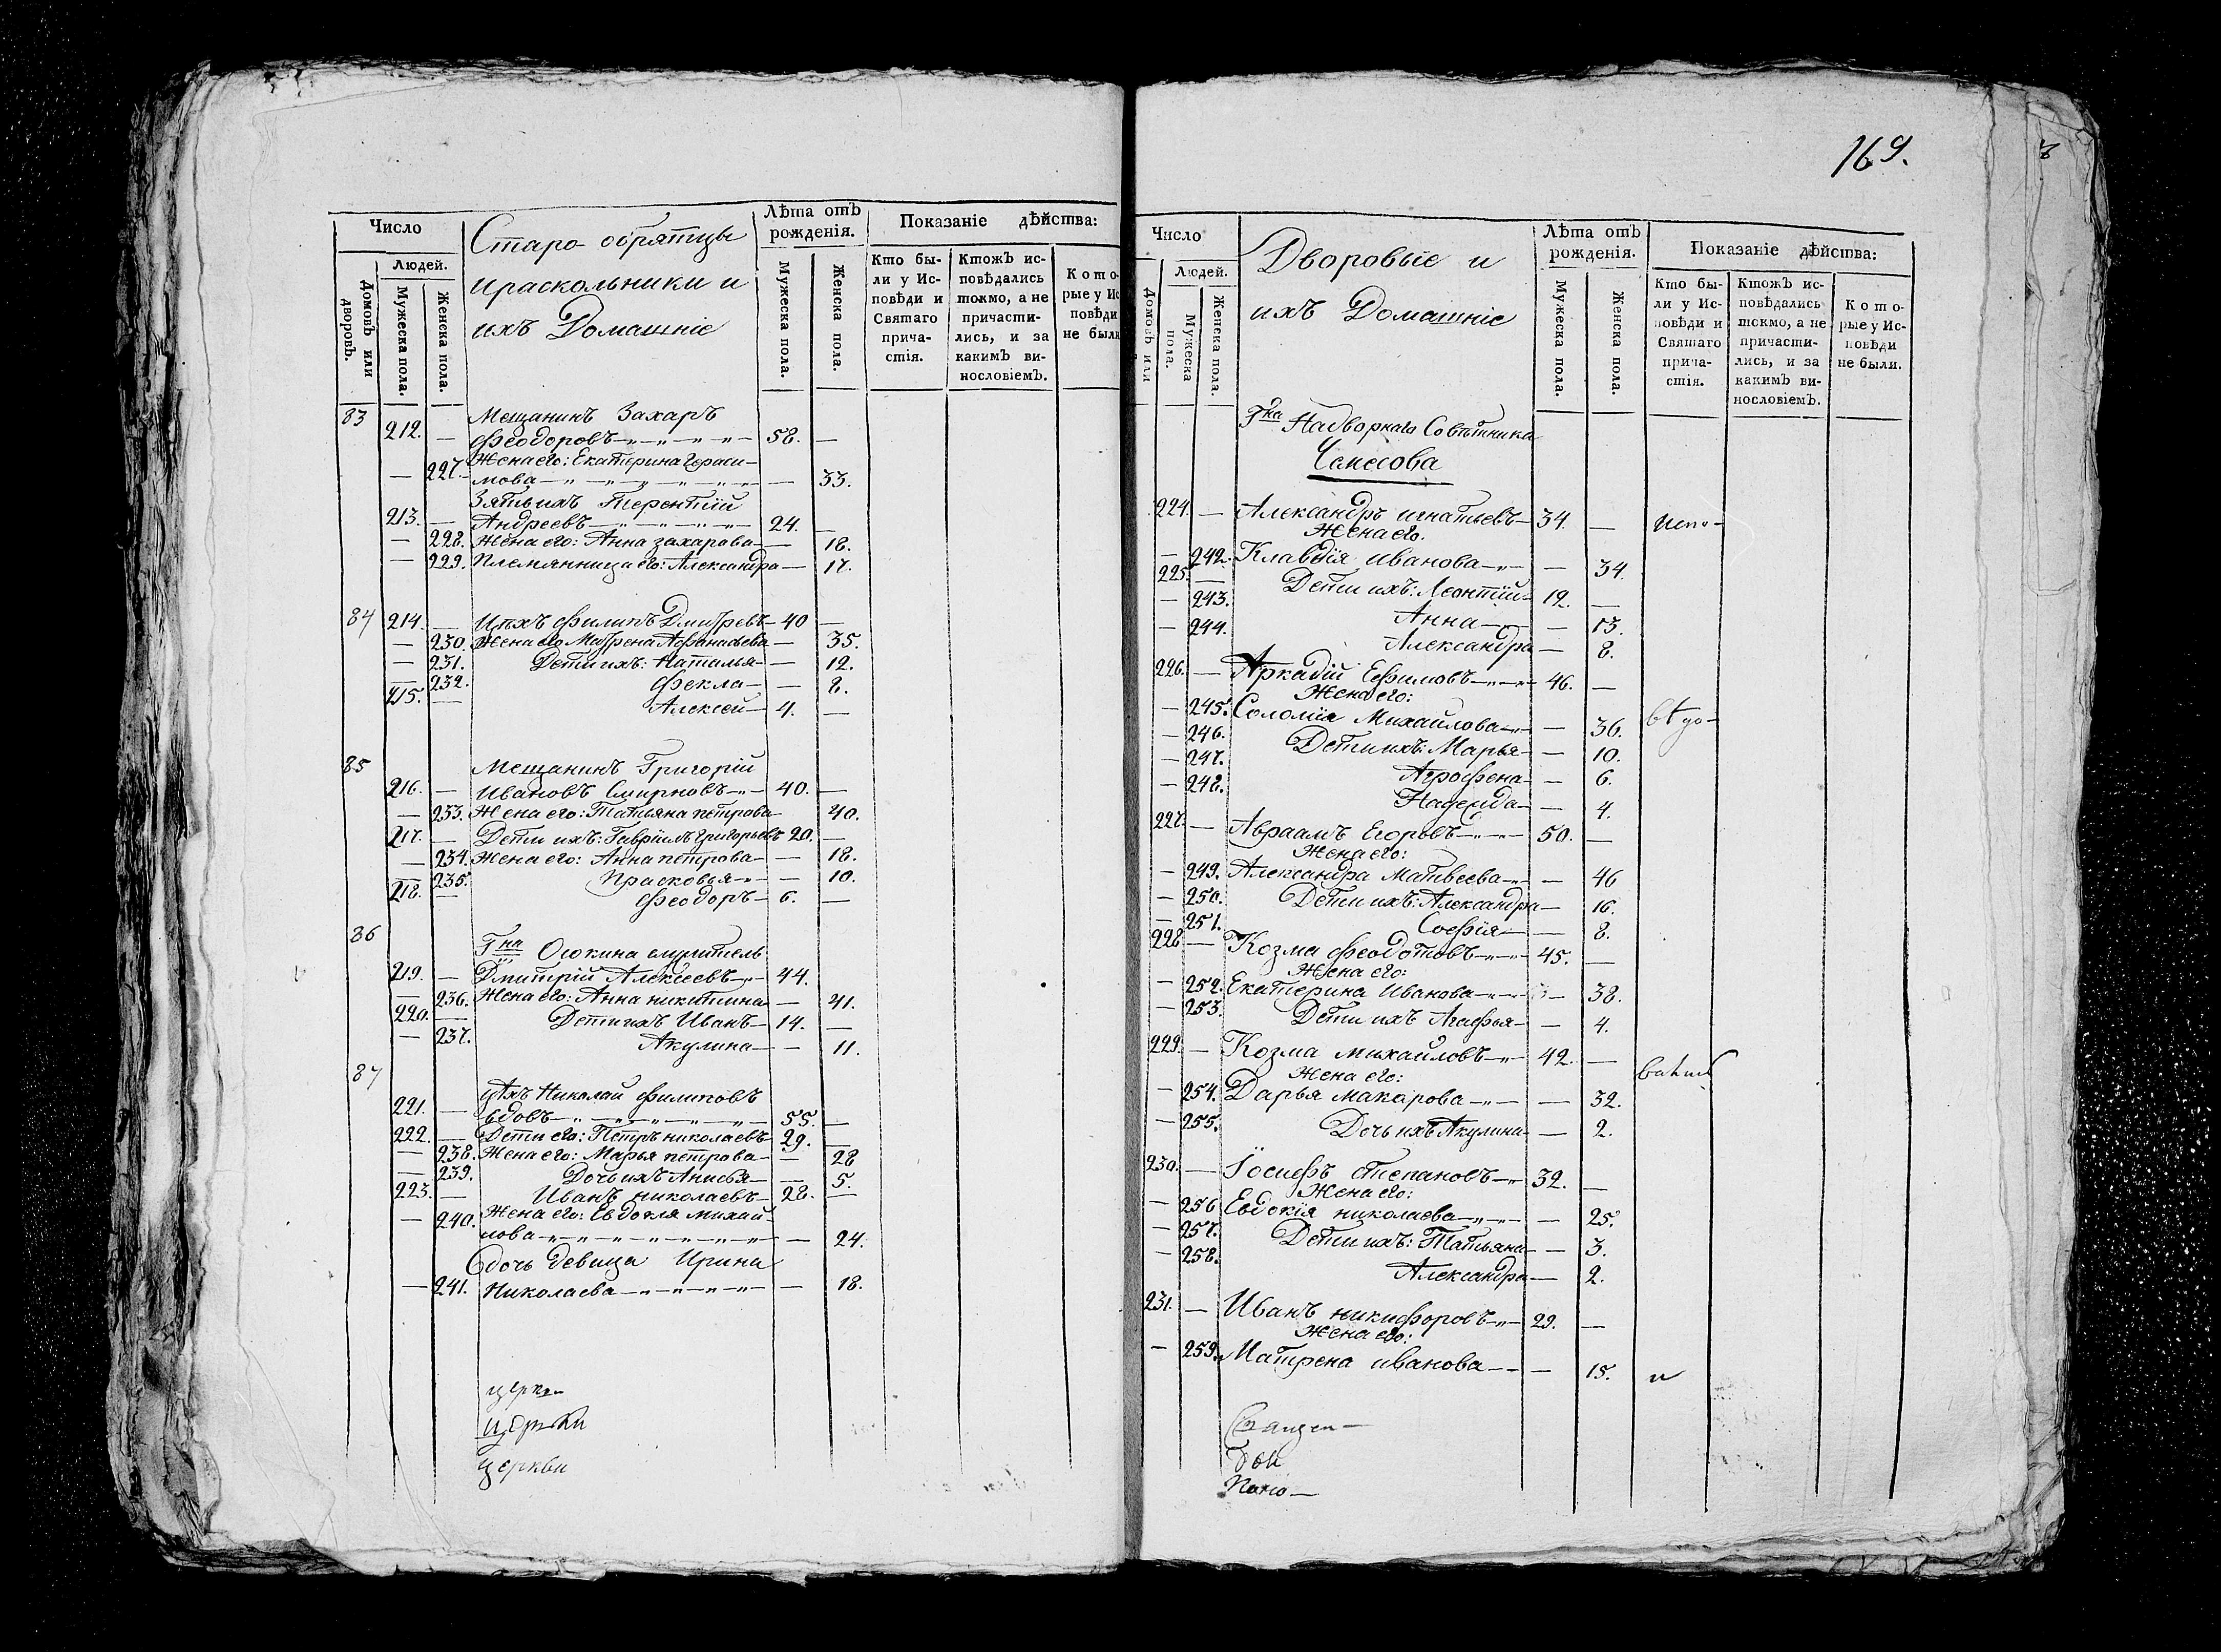 Число
Старо обрятцы
ираскольники и
ихъ Домашніе
Лѣта отъ рожденія.
Показаніе дѣйства:
Домовъ или дворовъ.
Людей.
Мужеска пола.
Женска пола.
Мужеска пола.
Женска пола.
Кто бы-
ли у Ис-
повѣди и
Святаго
прича-
стія.
Ктожъ ис-
повѣдались
токмо, а не
причасти-
лись, и за
какимъ ви-
нословіемъ.
Кото-
рые у Ис
повѣди
не были
83 Мещанинъ Захаръ
212. — Феодоровъ 58. —
Жена его: Екатерина Гераси-
— 227. мова — 33.
Зять ихъ Терентій
213. — Андреевъ 24. —
— 228. Жена его: Анна захарова — 18.
— 229. Племянница его: Александра — 17.
84 214. — Цѣхъ Филипъ Дмитревъ 40 —
— 230. Жена его Матрена Афанасьева — 35.
— 231. Дети ихъ: Наталья — 12.
— 232. Фекла — 8.
215. — Алексей 4. —
85 Мещанинъ Григорій
216. — Ивановъ Смирновъ 40. —
— 233. Жена его: Татьяна петрова 40.
217. — Дети ихъ: Гаврiилъ григорьевъ 20. —
— 234. Жена его: Анна петрова — 18.
— 235. Прасковья — 10.
218. — Феодоръ 6. —
86 Гна Осокина
219. — Дмитрій Алексеевъ 44.
— 236. Жена его: Анна никитина — 41.
220. — Дети ихъ Иванъ 14. —
— 237. Акулина — 11.
87 Цѣхъ Николай Филиповъ
221. — вдовъ 55. —
222. — Дети его: Петръ николаевъ 29. —
— 238. Жена его: Марья петрова — 28
— 239. Дочь ихъ Анисья — 5.
223. — Иванъ николаевъ 28. —
Жена его: Евдокия михай-
— 240. лова — 24.
дочь девица Ирина
— 241. Николаева — 18.
церкви
169.
Число
Дворовые и
ихъ Домашніе
Лѣта отъ рожденія.
Показаніе дѣйства:
Домовъ или
Людей.
Мужеска пола.
Женска пола.
Мужеска пола.
Женска пола.
Кто бы-
ли у Ис-
повѣди и
Святаго
прича-
стія.
Ктожъ ис-
повѣдались
токмо, а не
причасти-
лись, и за
какимъ ви-
нословіемъ.
Кото-
рые у Ис-
повѣди
не были.
Гна Надворнаго Советника
Чемесова
224. — Александръ игнатьевъ 34. — испо-
Жена его.
— 242. Клавдія иванова — 34.
225. — Дети ихъ: Леонтій 12. —
— 243. Анна — 13.
— 244. Александра — 8.
226. — Аркадій Ефимовъ 46. —
Жена его:
— 245. Соломія Михайлова — 36.
— 246. Дети ихъ: Марья — 10.
— 247. Агрофена — 6.
— 248. Надежда — 4.
227. — Авраамъ Егоровъ 50. —
Жена его:
— 249. Александра Матвеева — 46
— 250. Дети ихъ: Александра — 16.
— 251. Софія — 8.
228 — Козма Феодотовъ 45. —
Жена его:
— 252. Екатерина Иванова — 38.
— 253. Дети ихъ Агафья — 4.
229. — Козма михайловъ 42. —
Жена его:
— 254. Дарья макарова — 32.
— 255. Дочь ихъ Акулина — 2.
230. — Іосифъ степановъ 32. —
Жена его:
— 256 Евдокія николаева — 25.
— 257. Дети ихъ: Татьяна — 3.
— 258. Александра — 2.
231. — Иванъ никифоровъ 29. —
Жена его:
— 259. Матрена иванова — 15. и